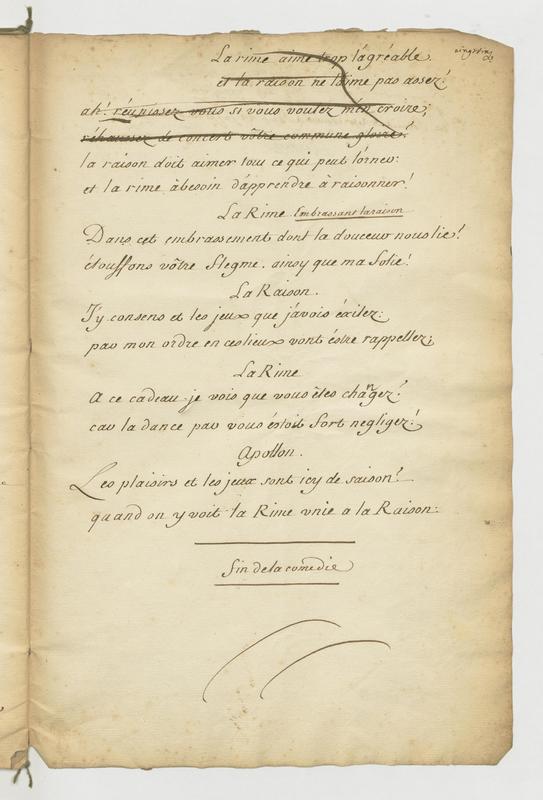 La rime aime trop l'agréable.
et la raison ne l'aime pas assez!
ah! réunissez vous si vous voulez m'en croire;
réhaussez de concert vôtre commune gloire!
la raison doit aimer tout ce qui peut l'orner:
et la rime à besoin d'apprendre à raisonner!
La Rime Embrassant la raison
Dans cet embrassement dont la douceur nous lie!
étouffons vôtre flegme, ainsy que ma folie!
La Raison.
J'y consens et les jeux que j'avois éxilez:
par mon ordre en ces lieux vont éstre rappellez;
La Rime
A ce cadeau je vois que vous étes changez!
car la dance par vous éstoit fort negligez!
Apollon.
Les plaisirs et les jeux sont icy de saison!
quand on y voit la Rime vnie a la Raison:
fin de la comédie